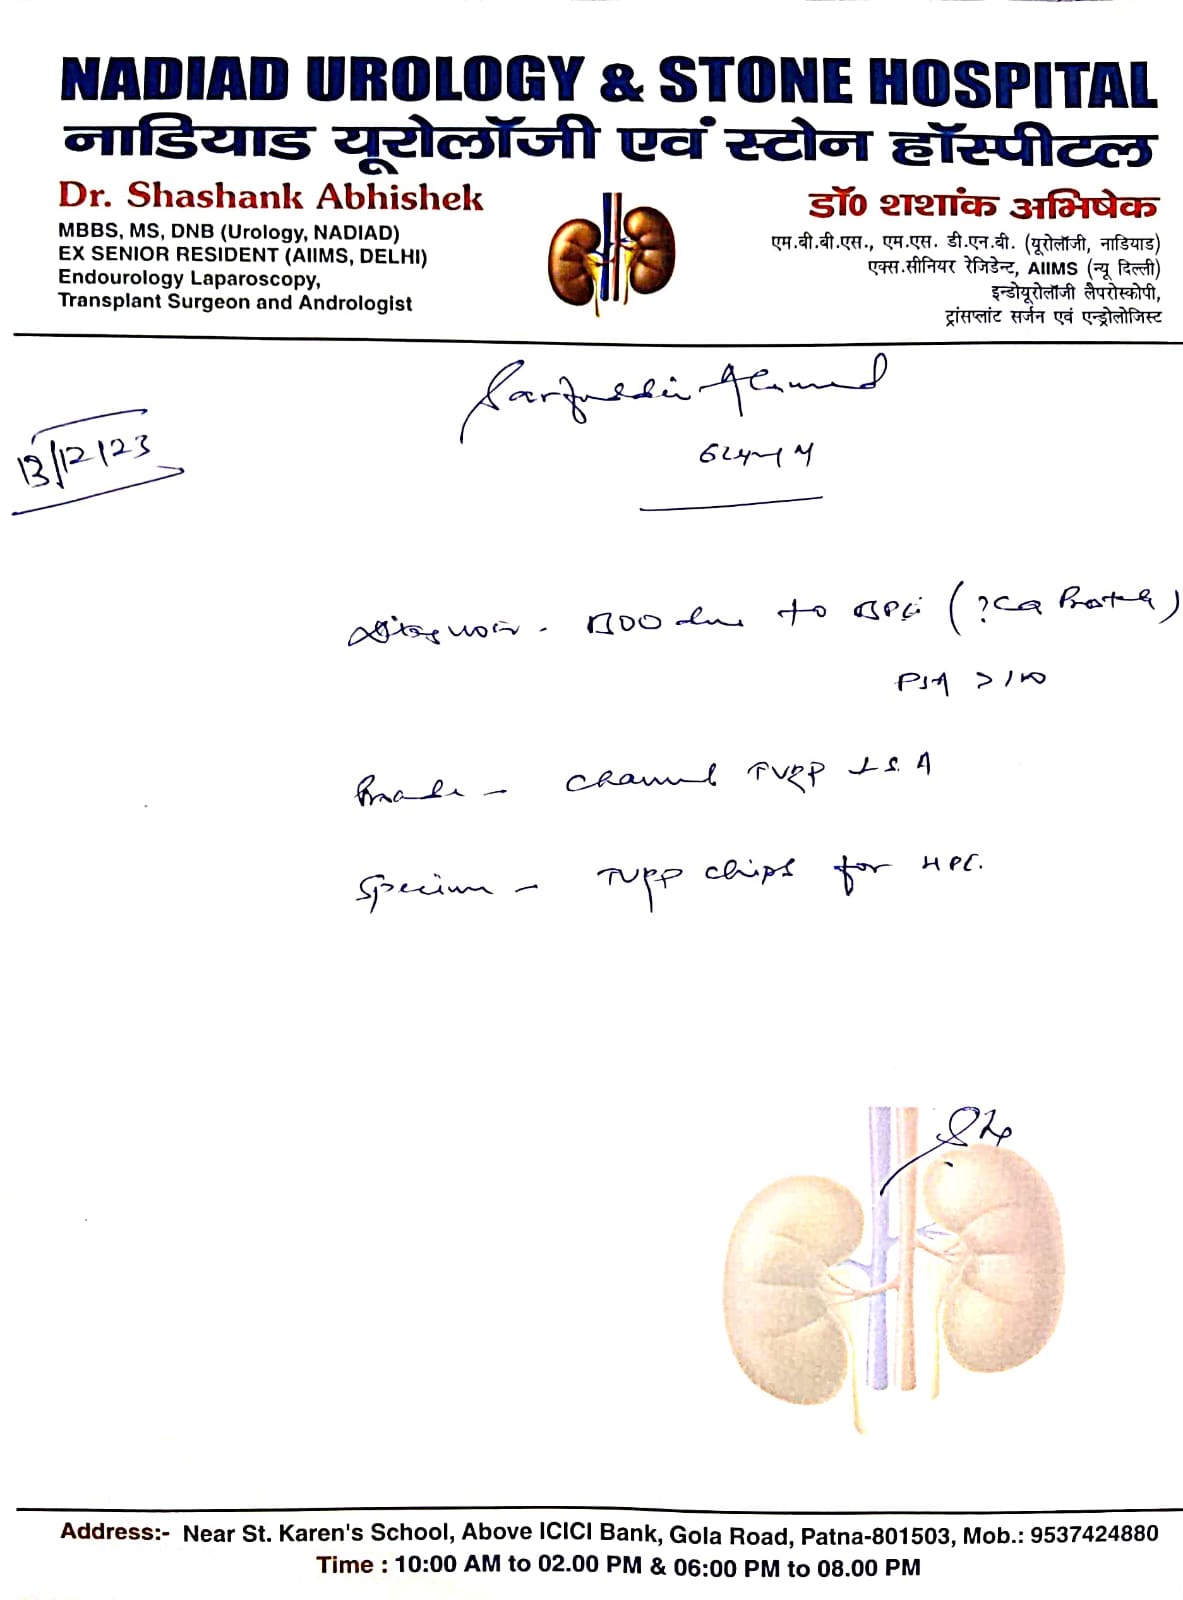 NADIAD UROLOGY & STONE HOSPITAL
नाडियाड यूरोलॉजी एवं स्टोन हॉस्पीटल
Dr. Shashank Abhishek
MBBS, MS, DNB (Urology, NADIAD)
EX SENIOR RESIDENT (AIIMS, DELHI)
Endourology Laparoscopy,
Transplant Surgeon and Andrologist
डॉ० शशांक अभिषेक
एम.बी.बी.एस., एम.एस. डी.एन.बी. (यूरोलॉजी, नाडियाड)
एक्स.सीनियर रेजिडेन्ट, AIIMS (न्यू दिल्ली)
इन्डोयूरोलॉजी लैपरोस्कोपी,
ट्रांसप्लांट सर्जन एवं एन्ड्रोलोजिस्ट
Sarfuddin Ahmed
13/12/23
62 M
Diagnosis - BOO due to BPE (?Ca Prostate)
PSA > 100
channel TURP
Specimen - TURP chips for HPE.
Address:- Near St. Karen's School, Above ICICI Bank, Gola Road, Patna-801503, Mob.: 9537424880
Time : 10:00 AM to 02.00 PM & 06:00 PM to 08.00 PM